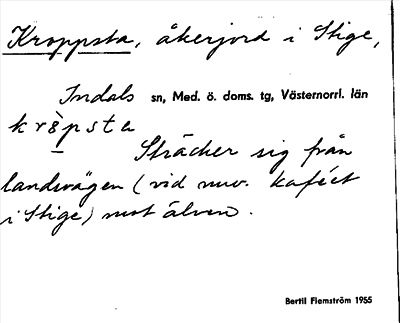 Kroppsta, åkerjord i Stige,
Indals sn, Med. ö. doms. tg, Västernorrl. län
krȍpsta
Sträcker sig från
landsvägen (vid nuv. kaféet
i Stige) mot älven.
Bertil Flemström 1955